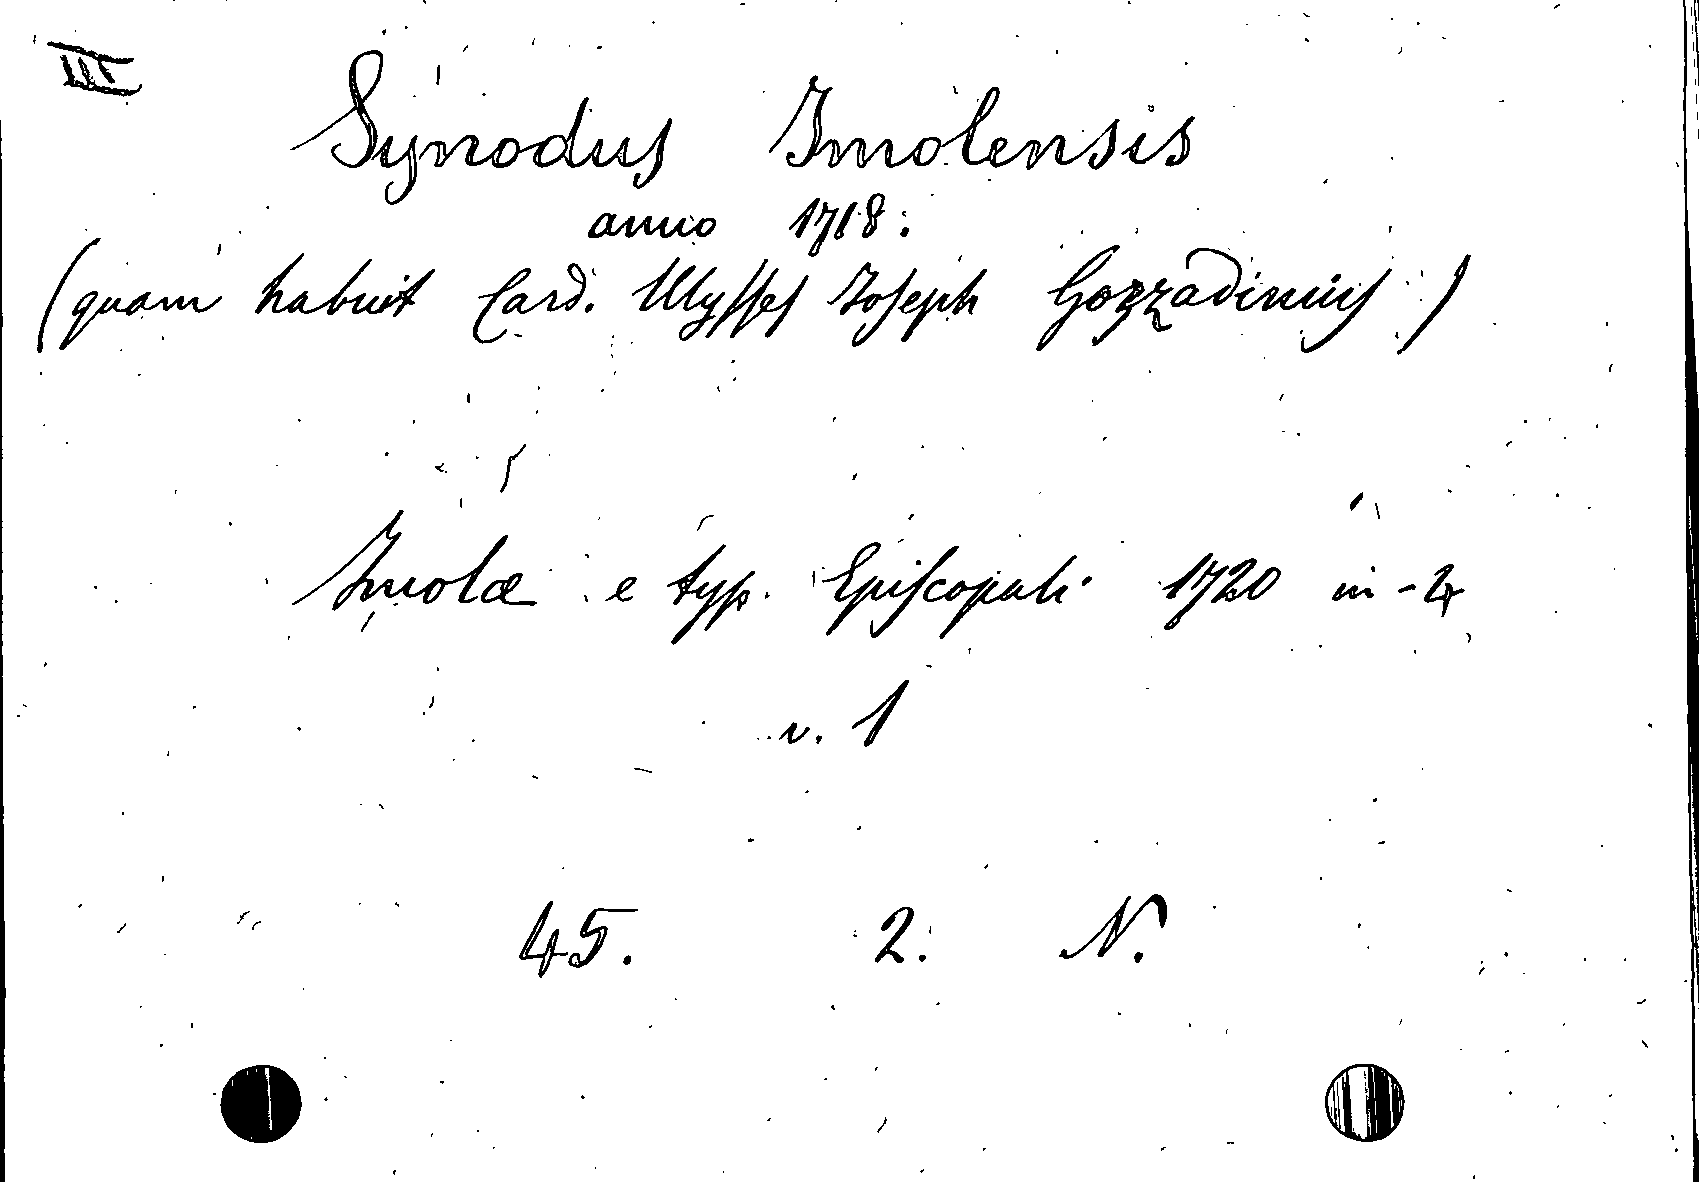 III
Synodus Imolensis
anno 1718.
(quam habuit Card. Ulysses Joseph Gozzadinus)
Imolæ e typ. Episcopali 1720 in-4
v. 1
45. 2. N.